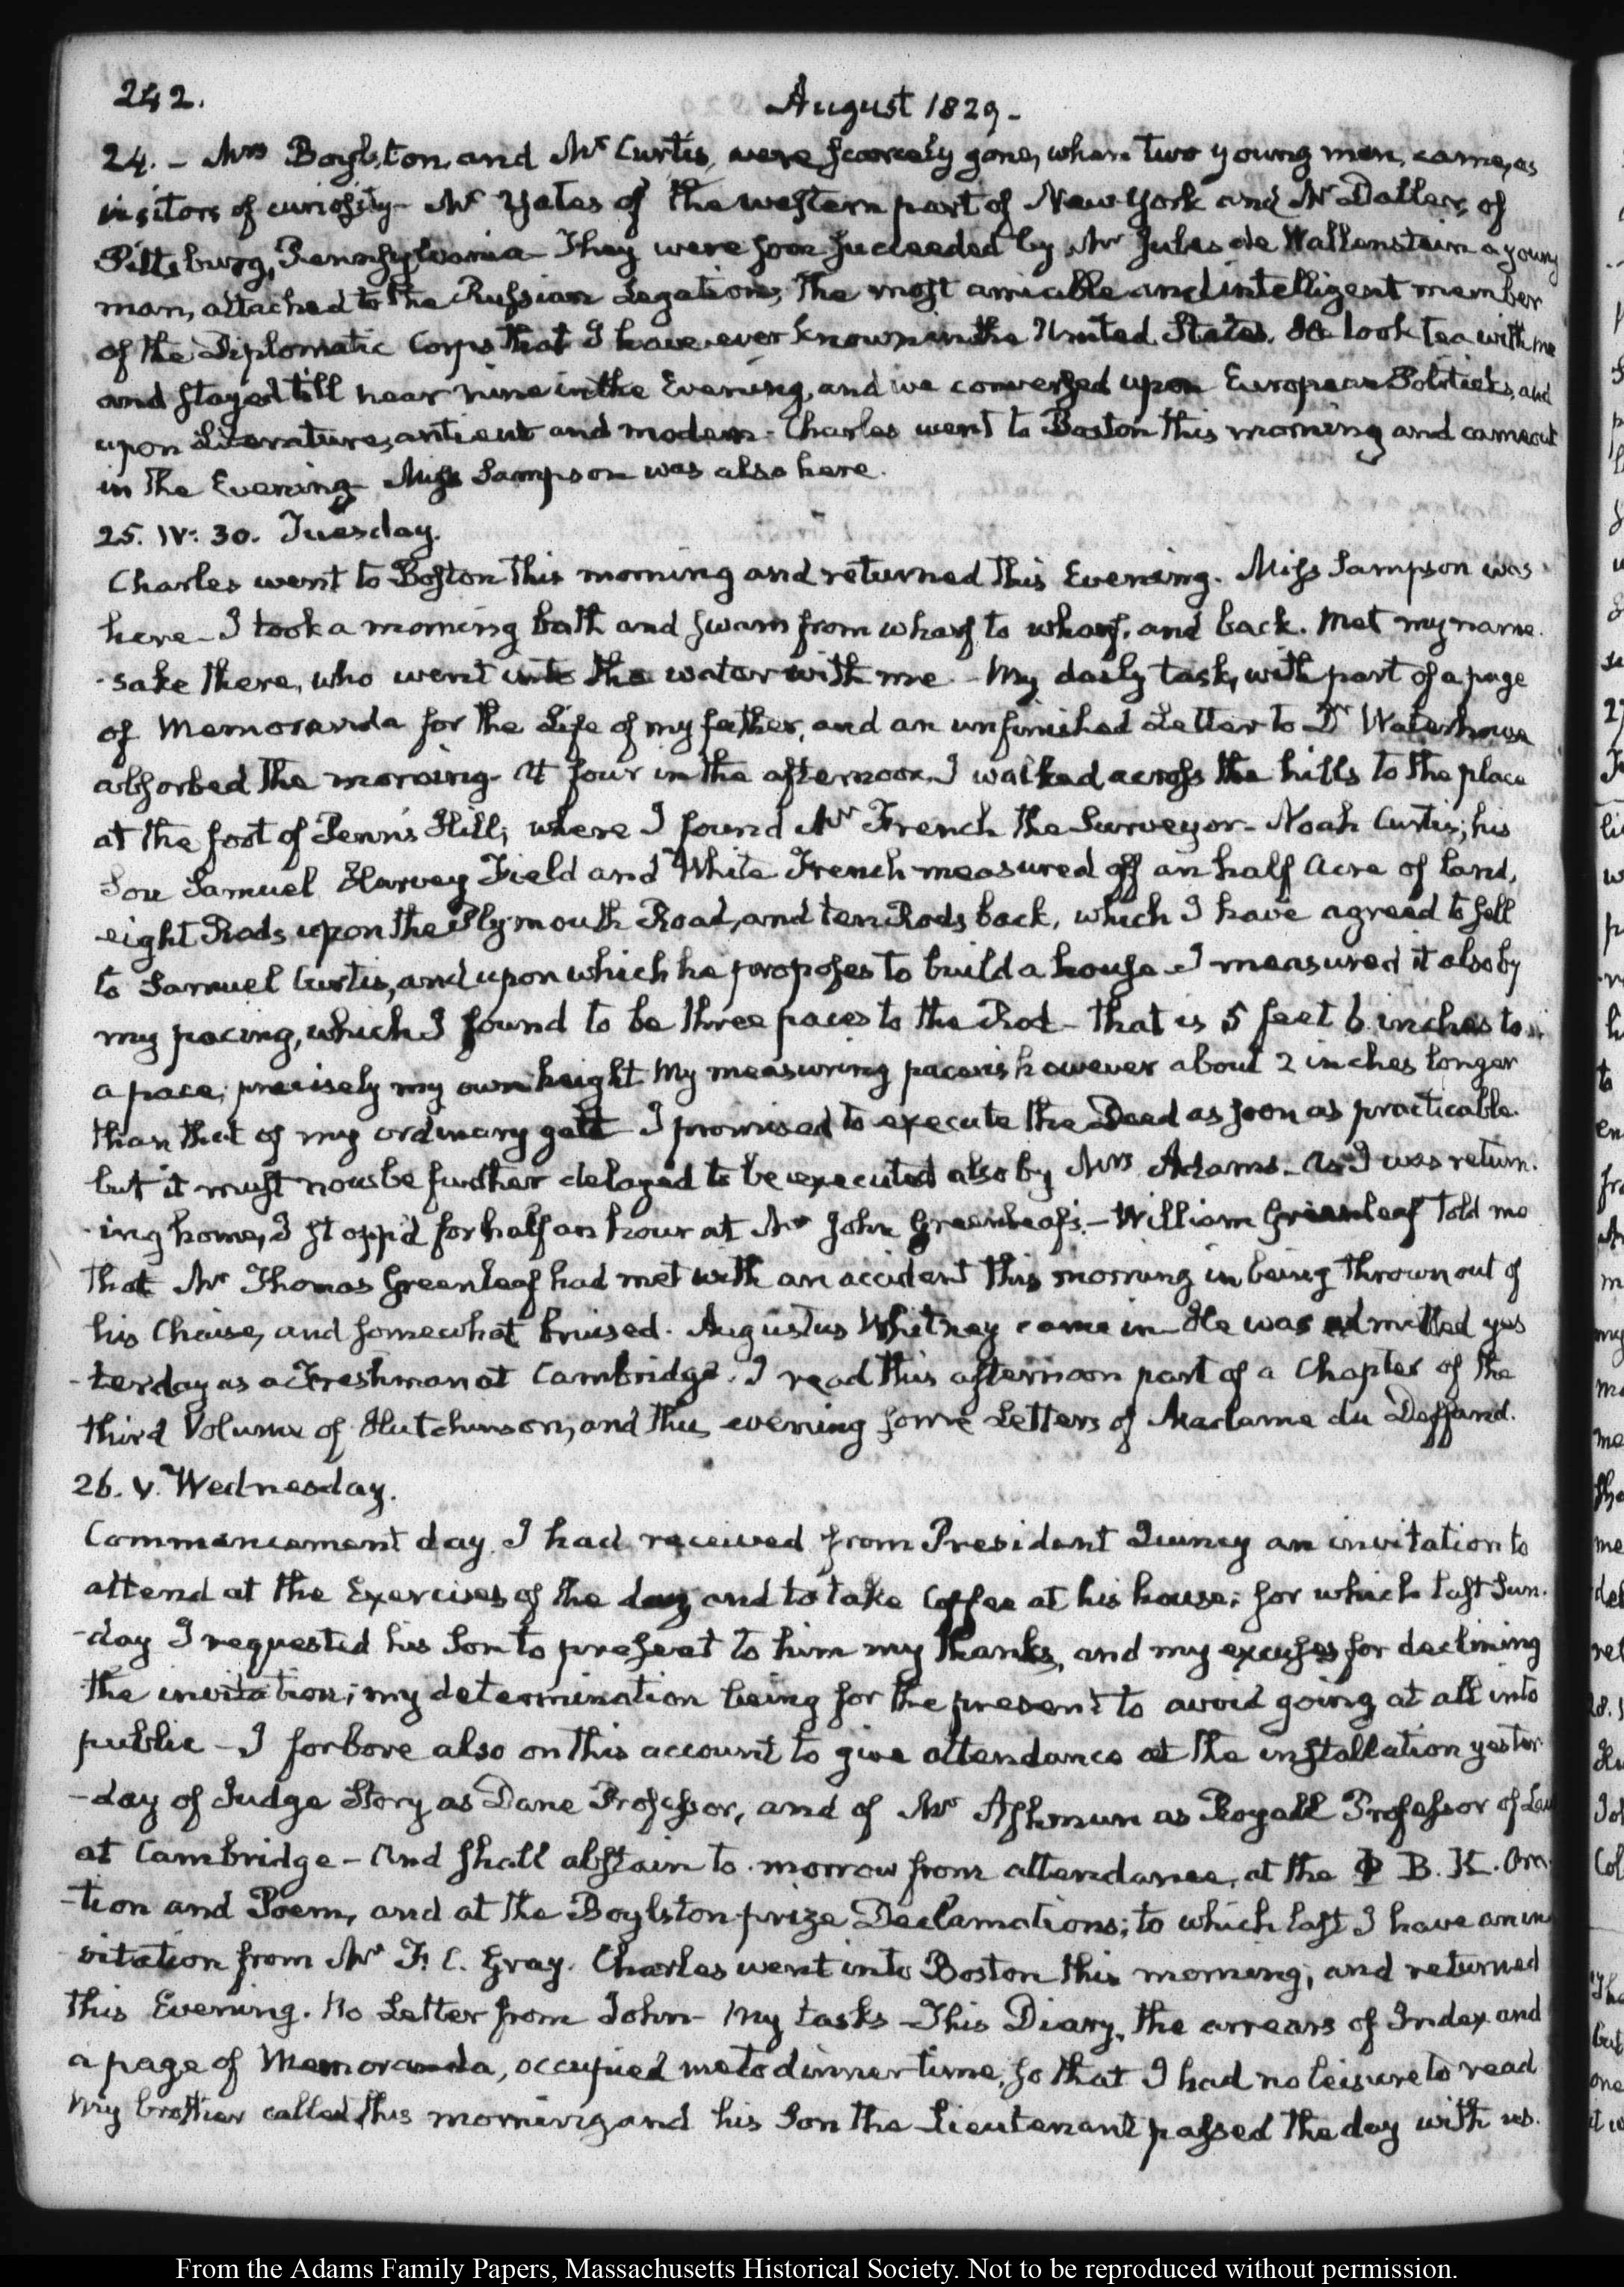 242.
August 1829.-
24. - Mrs Boylston and Mr Curtis, were scarcely gone, when two young men, came, as
visitors of curiosity - Mr Yates of the western part of New York and Mr Dallas of
Pittsburg, Pennsylvania - They were soon succeeded by Mr Jules de Wallenstein a young
man, attached to the Russian Legation; The most amiable and intelligent member
of the Diplomatic Corps that I have ever known in the United States. He took tea with me
and stayed till near nine in the Evening, and we conversed upon European Politicks, and
upon Literature, antient and modern - Charles went to Boston this morning and came out
in the Evening - Miss Sampson was also here.
25. IV: 30. Tuesday.
Charles went to Boston this morning and returned this Evening. Miss Sampson was
here - I took a morning bath and swam from wharf to wharf, and back. Met my name-
-sake there, who went into the water with me - My daily task, with part of a page
of Memoranda for the Life of my father, and an unfinished Letter to Dr Waterhouse
absorbed the morning - At four in the afternoon I walked across the hills to the place
at the foot of Penn's Hill; where I found Mr French the Surveyor - Noah Curtis; his
Son Samuel Harvey Field and White French measured off an half Acre of land,
eight Rods upon the Plymouth Road, and ten Rods back, which I have agreed to sell
to Samuel Curtis, and upon which he proposes to build a house - I measured it also by
my pacing, which I found to be three paces to the Rod - that is 5 feet 6 inches to
a pace; precisely my own height. My measuring pace is however about 2 inches longer
than that of my ordinary gait - I promised to execute the Deed as soon as practicable.
but it must now be further delayed to be executed also by Mrs Adams - As I was return-
-ing home, I stopp'd for half an hour at Mr John Greenleaf's. - William Greenleaf told me
that Mr Thomas Greenleaf had met with an accident this morning in being thrown out of
his Chaise, and somewhat bruised. Augustus Whitney came in - He was admitted yes
-terday as a Freshman at Cambridge. I read this afternoon part of a Chapter of the
third Volume of Hutchinson, and this evening some Letters of Madame du Deffand.
26. V. Wednesday.
Commencement day. I had received from President Quincy an invitation to
attend at the Exercises of the day, and to take Coffee at his house; for which last Sun-
-day I requested his Son to present to him my thanks, and my excuses for declining
the invitation; my determination being for the present to avoid going at all into
public - I forbore also on this account to give attendance at the installation yester
-day of Judge Story as Dane Professor, and of Mr Ashmun as Royall Professor of Law
at Cambridge - And shall abstain to-morrow from attendance, at the Φ B. K. Ora-
-tion and Poem, and at the Boylston prize Declamations; to which last I have an in
vitation from Mr F. C. Gray. Charles went into Boston this morning; and returned
this Evening. No Letter from John - My tasks - This Diary, the arrears of Index and
a page of Memoranda, occupied me to dinner time, so that I had no leisure to read
My brother called this morning and his Son the Lieutenant passed the day with us.
From the Adams Family Papers, Massachusetts Historical Society. Not to be reproduced without permission.